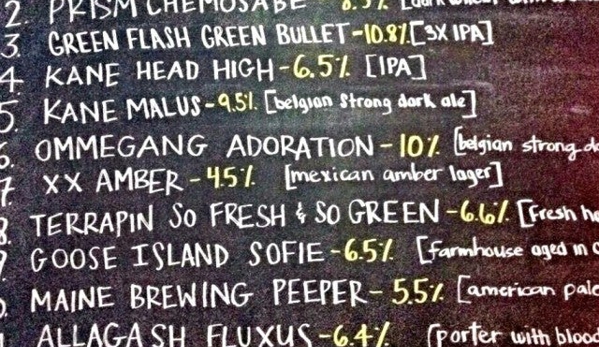 2. PRISM CHEMOSABE
3. GREEN FLASH GREEN BULLET - 10.8% [3X IPA]
4. KANE HEAD HIGH - 6.5% [IPA]
5. KANE MALUS - 9.5% [belgian strong dark ale]
6. OMMEGANG ADORATION - 10% [belgian strong
7 XX AMBER - 4.5% [mexican amber lager]
8. TERRAPIN SO FRESH & SO GREEN - 6.6% [fresh
9 GOOSE ISLAND SOFIE - 6.5% [farmhouse aged in
MAINE BREWING PEEPER - 5.5% [american pale
ALLAGASH FLUXUS - 6.4% [porter with blood